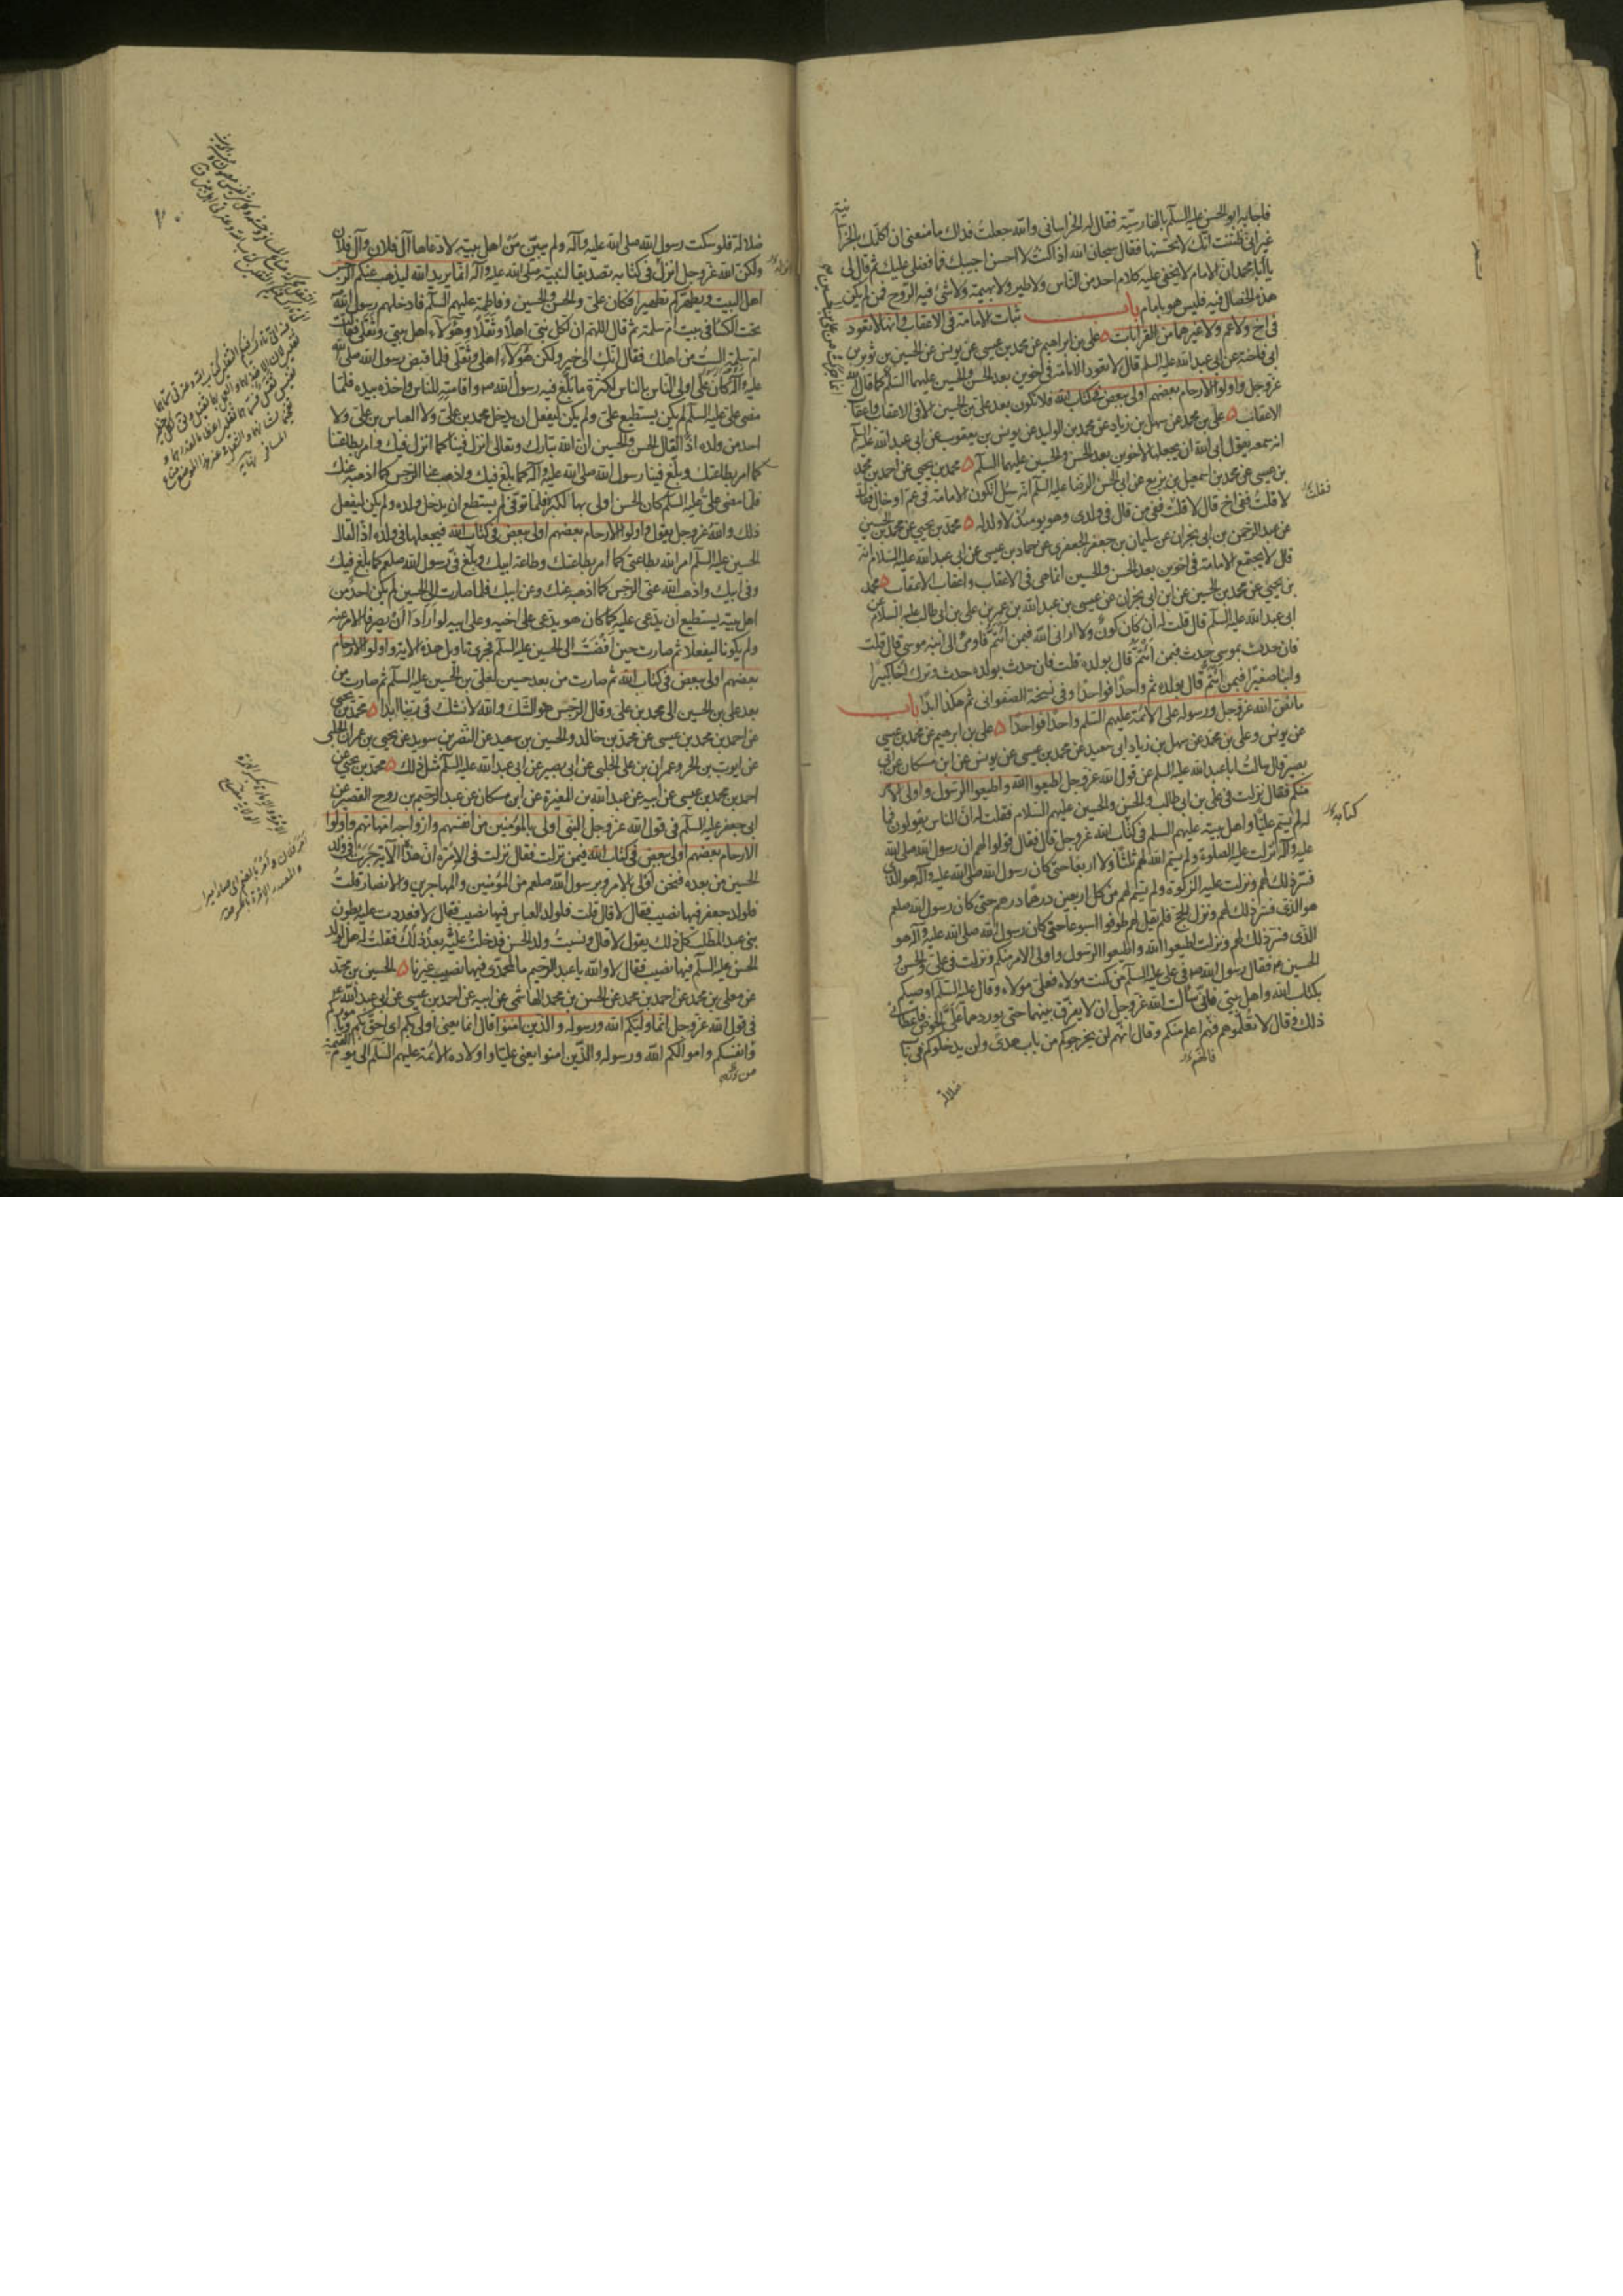 فاجابه ابو الحسن عليه السلم بالفارسيّة فقال له الخراسانى والله جعلت فداك ما منعنى ان اكلمك بالخرا
نية
غير انى ظننت انك لا تحسنها فقال سبحان الله اذا كنت لا احسن اجيبك فما فضلى عليك ثم قال لى
يا ابا محمد ان الامام لا يخفى عليه كلام احد من الناس ولا طير ولا بهيمة ولا شئ فيه الروح فمن لم يكن
هذه الخصال فيه فليس هو بامام باب ثبات الامامة فى الاعقاب وانها لا تعود
فى اخ ولا عم ولا غيرهما من القرابات ه على بن ابراهيم عن محمد بن عيسى عن يونس عن الحسين بن ثوير بن
ابى فاخته عن ابى عبد الله عليه السلم قال لا تعود الامامة فى اخوين بعد الحسن والحسين عليهما السلم كما قال الله
عز وجل واولوا الارحام بعضهم اولى ببعض فى كتاب الله فلا تكون بعد على بن الحسين الا فى الاعقاب واعقاب
الاعقاب ه على بن محمد عن سهل بن زياد عن محمد بن الوليد عن يونس بن يعقوب عن ابى عبد الله عليه السلم
انه سمعه يقول ابى الله ان يجعلها لاخوين بعد الحسن والحسين عليهما السلم ه محمد بن يحيى عن احمد بن محمد
بن عيسى عن محمد بن اسمعيل بن بزيع عن ابى الحسن الرضا عليه السلم انه سئل اتكون الامامة فى عم او خال فقال
لا قلت ففى اخ قال لا قلت ففى من قال فى ولدى وهو يومئذ لا ولد له ه محمد بن يحيى عن محمد بن الحسين
عن عبد الرحمن بن ابى نجران عن سليمان بن جعفر الجعفرى عن حماد بن عيسى عن ابى عبد الله عليه السلام انه
قال لا يجتمع الامامة فى اخوين بعد الحسن والحسين انما هى فى الاعقاب واعقاب الاعقاب ه محمد
بن يحيى عن محمد بن الحسين عن ابن ابى نجران عن عيسى بن عبد الله بن عمر بن على بن ابى طالب عليه السلام عن
ابى عبد الله عليه السلم قال قلت له ان كان كون ولا ارانى الله فبمن ائتم فاومئ الى ابنه موسى قال قلت
فان حدث بموسى حدث فبمن ائتم قال بولده قلت فان حدث بولده حدث وترك اخا كبيرا
وابنا صغيرا فبمن ائتم قال بولده ثم واحدا فواحدا وفى نسخة الصفوانى ثم هكذا ابدا باب
ما نص الله عز وجل ورسوله على الائمة عليهم السلم واحدا فواحدا ه على بن ابرهيم عن محمد بن عيسى
عن يونس وعلى بن محمد عن سهل بن زياد ابى سعيد عن محمد بن عيسى عن يونس عن ابن مسكان عن ابى
بصير قال سالت ابا عبد الله عليه السلم عن قول الله عز وجل اطيعوا الله واطيعوا الرسول واولى الامر
منكم فقال نزلت فى على بن ابى طالب والحسن والحسين عليهم السلام فقلت له ان الناس يقولون فما
له لم يسم عليا واهل بيته عليهم السلم فى كتاب الله عز وجل قال فقال قولوا لهم ان رسول الله صلى الله
عليه وآله نزلت عليه الصلوة ولم يسم الله لهم ثلثا ولا اربعا حتى كان رسول الله صلى الله عليه وآله هو الذى
فسر ذلك لهم ونزلت عليه الزكوة ولم يسم لهم من كل اربعين درهما درهم حتى كان رسول الله صلعم
هو الذى فسر ذلك لهم ونزل الحج فلم يقل لهم طوفوا اسبوعا حتى كان رسول الله صلى الله عليه وآله هو
الذى فسر ذلك لهم ونزلت اطيعوا الله واطيعوا الرسول واولى الامر منكم ونزلت فى على والحسن و
الحسين فقال رسول الله فى على عليه السلم من كنت مولاه فعلى مولاه وقال عليه السلم اوصيكم
بكتاب الله واهل بيتى فانى سالت الله عز وجل ان لا يفرق بينهما حتى يوردهما على الحوض فاعطانى
ذلك وقال لا تعلموهم فهم اعلم منكم وقال انهم لن يخرجوكم من باب هدى ولن يدخلوكم فى باب
ضلالة
ضلالة فلو سكت رسول الله صلى الله عليه وآله ولم يبين من اهل بيته لادعاها آل فلان وآل فلان
ولكن الله عز وجل انزل فى كتابه تصديقا لنبيه صلى الله عليه وآله انما يريد الله ليذهب عنكم الرجس
اهل البيت ويطهركم تطهيرا فكان على والحسن والحسين وفاطمة عليهم السلم فادخلهم رسول الله
تحت الكساء فى بيت ام سلمة ثم قال اللهم ان لكل نبى اهلا وثقلا وهؤلاء اهل بيتى وثقلى فقالت
ام سلمة الست من اهلك فقال انك الى خير ولكن هؤلاء اهلى وثقلى فلما قبض رسول الله صلى الله
عليه وآله كان على اولى الناس بالناس لكثرة ما بلغ فيه رسول الله واقامته للناس واخذه بيده فلما
مضى على عليه السلم لم يكن يستطيع على ولم يكن ليفعل ان يدخل محمد بن على ولا العباس بن على ولا
احد من ولده اذا لقال الحسن والحسين ان الله تبارك وتعالى انزل فينا كما انزل فيك وامر بطاعتنا
كما امر بطاعتك وبلغ فينا رسول الله صلى الله عليه وآله كما بلغ فيك واذهب عنا الرجس كما اذهبه عنك
فلما مضى على عليه السلم كان الحسن اولى بها لكبره فلما توفى لم يستطع ان يدخل ولده ولم يكن ليفعل
ذلك والله عز وجل يقول واولوا الارحام بعضهم اولى ببعض فى كتاب الله فيجعلها فى ولده اذا لقال
الحسين عليه السلم امر الله بطاعتى كما امر بطاعتك وطاعة ابيك وبلغ فى رسول الله صلعم كما بلغ فيك
وفى ابيك واذهب الله عنى الرجس كما اذهب عنك وعن ابيك فلما صارت الى الحسين لم يكن احد من
اهل بيته يستطيع ان يدعى عليه كما كان هو يدعى على اخيه وعلى ابيه لو ارادا ان يصرفا الامر عنه
ولم يكونا ليفعلا ثم صارت حين افضت الى الحسين عليه السلم فجرى تاويل هذه الاية واولوا الارحام
بعضهم اولى ببعض فى كتاب الله ثم صارت من بعد حسين لعلى بن الحسين عليه السلم ثم صارت من
بعد على بن الحسين الى محمد بن على وقال الرجس هو الشك والله لا نشك فى ربنا ابدا ه محمد بن يحيى
عن احمد بن محمد بن عيسى عن محمد بن خالد والحسين بن سعيد عن النضر بن سويد عن يحيى بن عمران الحلبى
عن ايوب بن الحر وعمران بن على الحلبى عن ابى بصير عن ابى عبد الله عليه السلم مثل ذلك ه محمد بن يحيى عن
احمد بن محمد بن عيسى عن ابيه عن عبد الله بن المغيرة عن ابن مسكان عن عبد الرحيم بن روح القصير عن
ابى جعفر عليه السلم فى قول الله عز وجل النبى اولى بالمؤمنين من انفسهم وازواجه امهاتهم واولوا
الارحام بعضهم اولى ببعض فى كتاب الله فيمن نزلت فقال نزلت فى الامرة ان هذه الآية جرت فى ولد
الحسين من بعده فنحن اولى بالامر وبرسول الله صلعم من المؤمنين والمهاجرين والانصار قلت
فلولد جعفر فيها نصيب فقال لا قال قلت فلولد العباس فيها نصيب فقال لا فعددت عليه بطون
بنى عبد المطلب كل ذلك يقول لا قال ونسيت ولد الحسن فدخلت عليه بعد ذلك فقلت له هل لولد
الحسن عليه السلم فيها نصيب فقال لا والله يا عبد الرحيم ما لمحمدى فيها نصيب غيرنا ه الحسين بن محمد
عن معلى بن محمد عن احمد بن محمد عن الحسن بن محمد الهاشمى عن ابيه عن احمد بن عيسى عن ابى عبد الله
فى قول الله عز وجل انما وليكم الله ورسوله والذين امنوا قال انما يعنى اولى بكم اى احق بكم وباموركم
وانفسكم واموالكم الله ورسوله والذين امنوا يعنى عليا واولاده الائمة عليهم السلم الى يوم القيمة